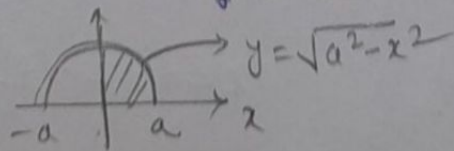 y = √a² - x²
-a a x